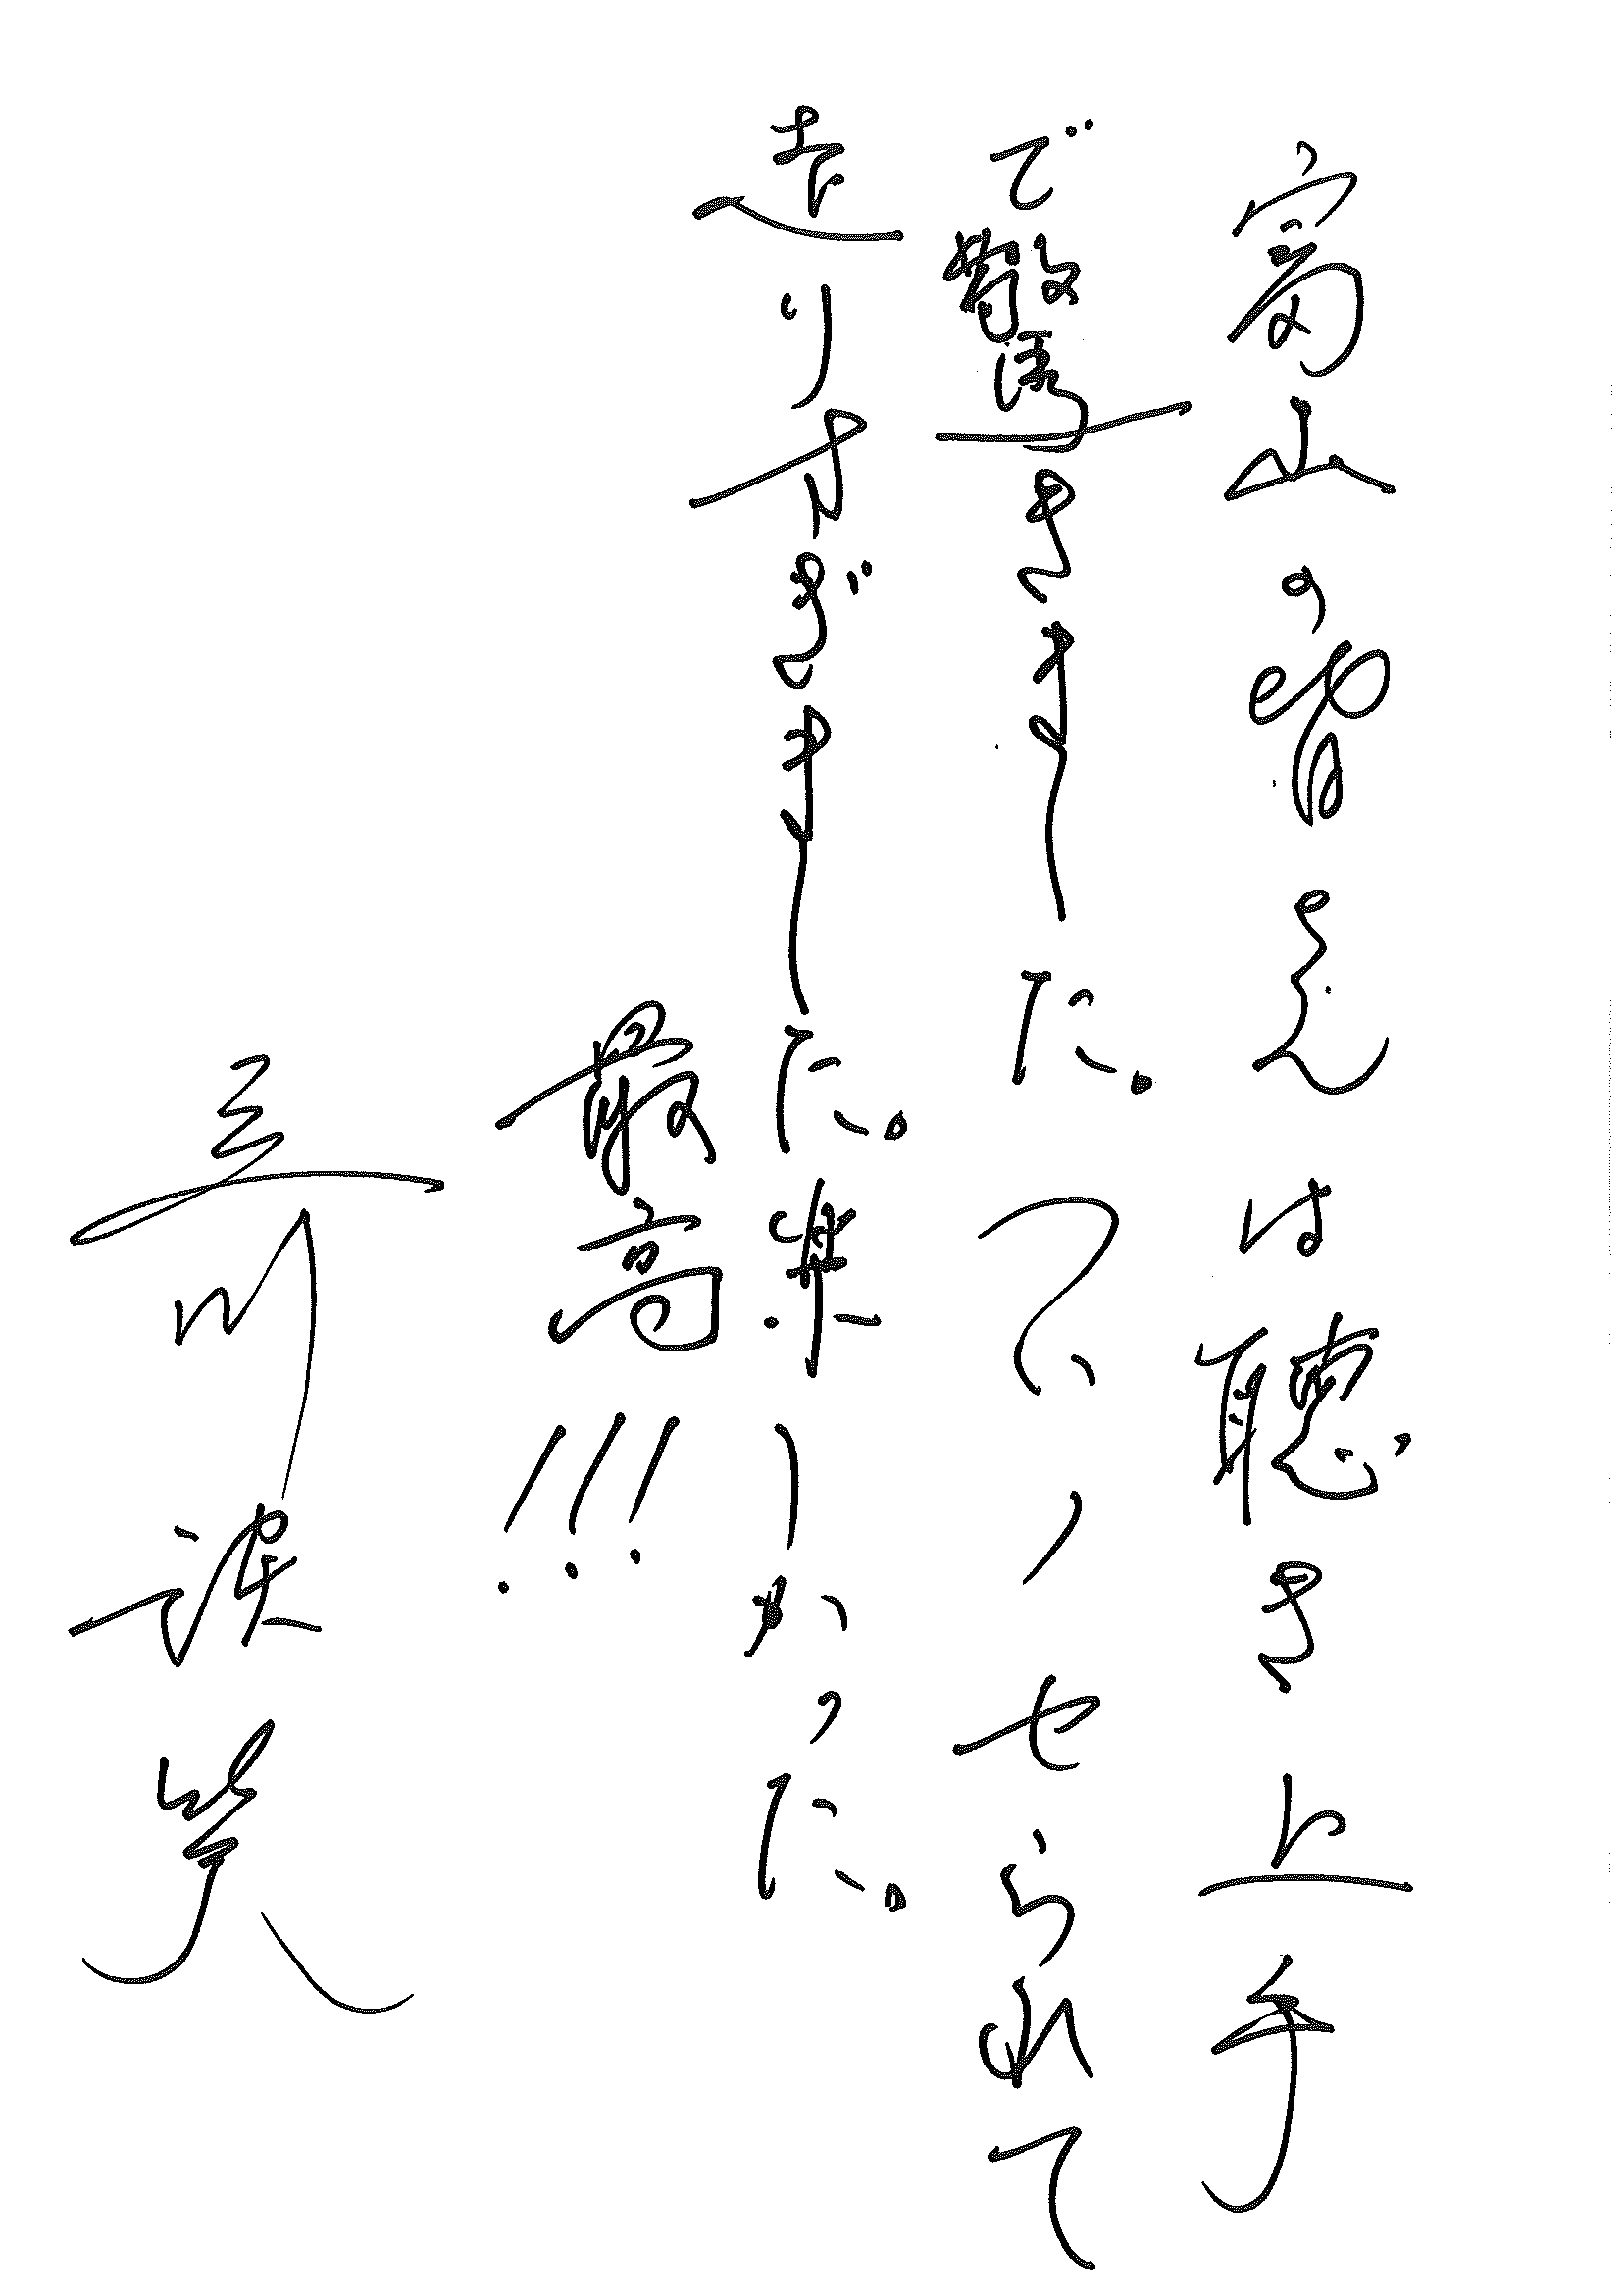 富山の皆さんは聴き上手
で驚きました。ついノせられて
走りすぎました。楽しかった。
最高!!!
三川誤笑